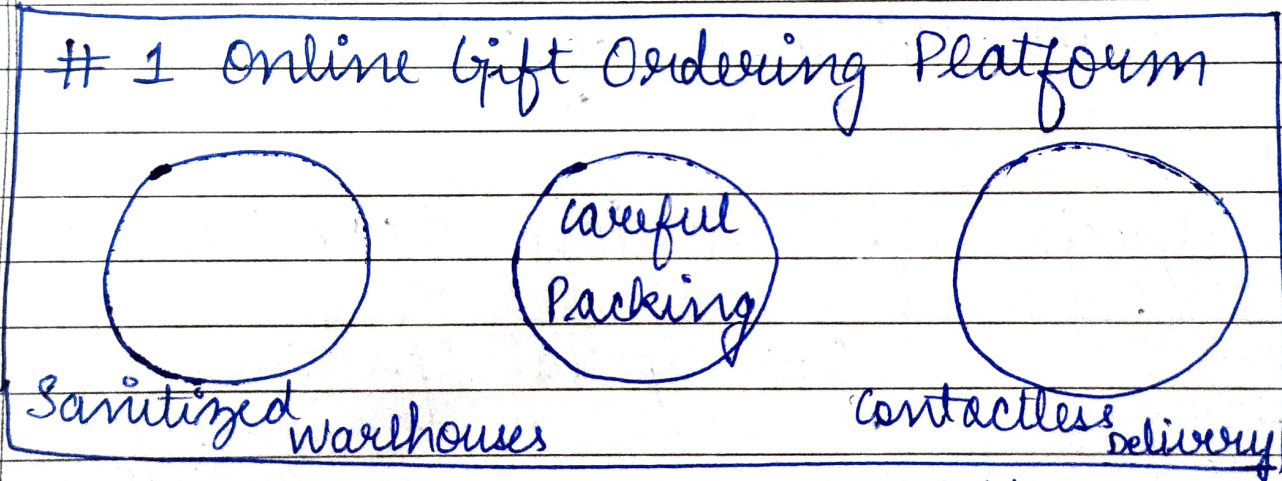 # 1 Online Gift Ordering Platform
careful
Packing
Sanitized
Warehouses
Contactless
Delivery